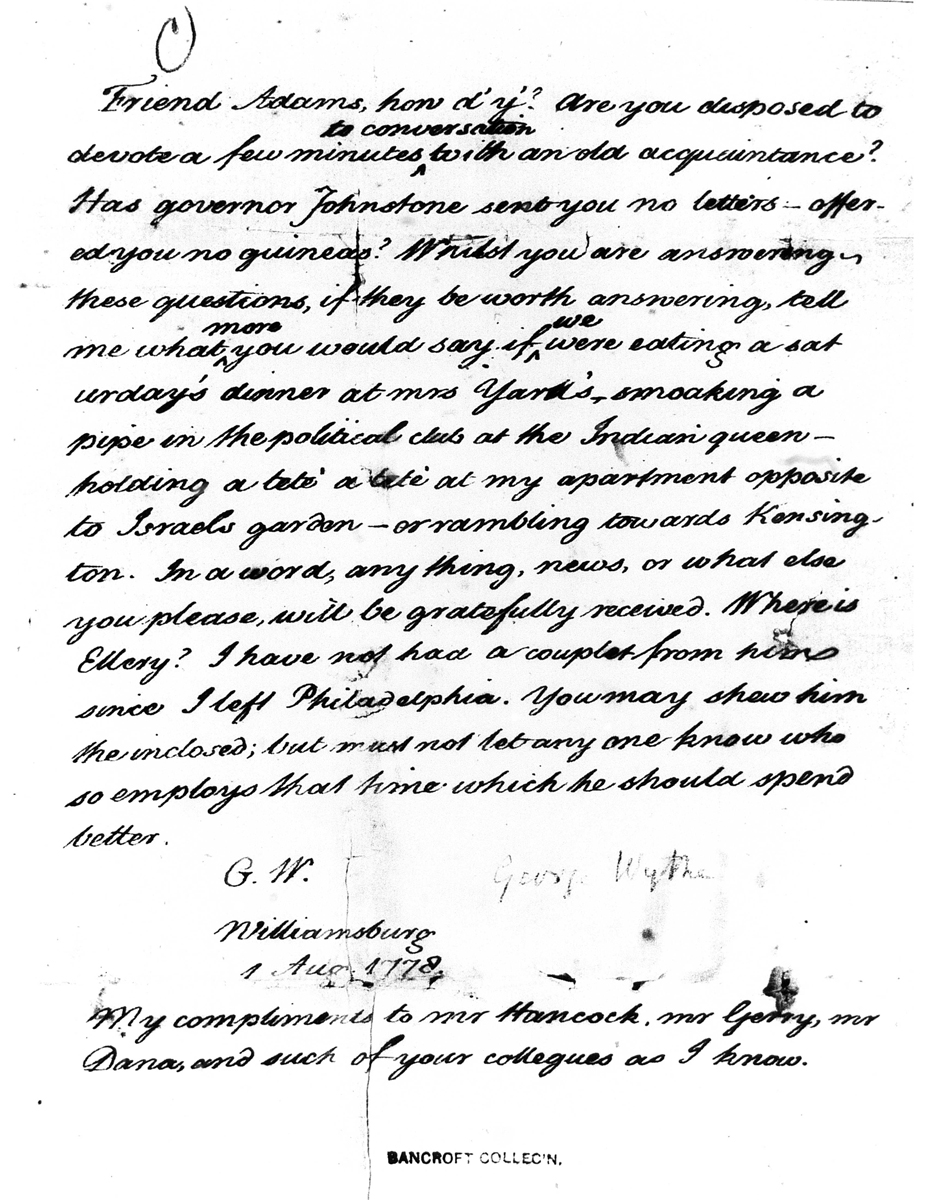 Friend Adams, how d'y'? Are you disposed to
to conversation
devote a few minutes ‸ with an old acquaintance?
Has governor Johnstone sent you no letters – offer-
ed you no guineas? Whilst you are answering
these questions, if they be worth answering, tell
more we
me what ‸ you would say if ‸ were eating a sat
urday's dinner at mrs Yard's, smoaking a
pipe in the political club at the Indian queen –
holding a teté a teté at my apartment opposite
to Israels garden – or rambling towards Kensing-
ton. In a word, any thing, news, or what else
you please, will be gratefully received. Where is
Ellery? I have not had a couplet from him
since I left Philadelphia. You may shew him
the inclosed; but must not let any one know who
so employs that time which he should spend
better.
G. W. George Wythe
Williamsburg
1 Aug. 1778.
My compliments to mr Hancock, mr Gerry, mr
Dana, and such of your collegues as I know.
BANCROFT COLLEC'N.